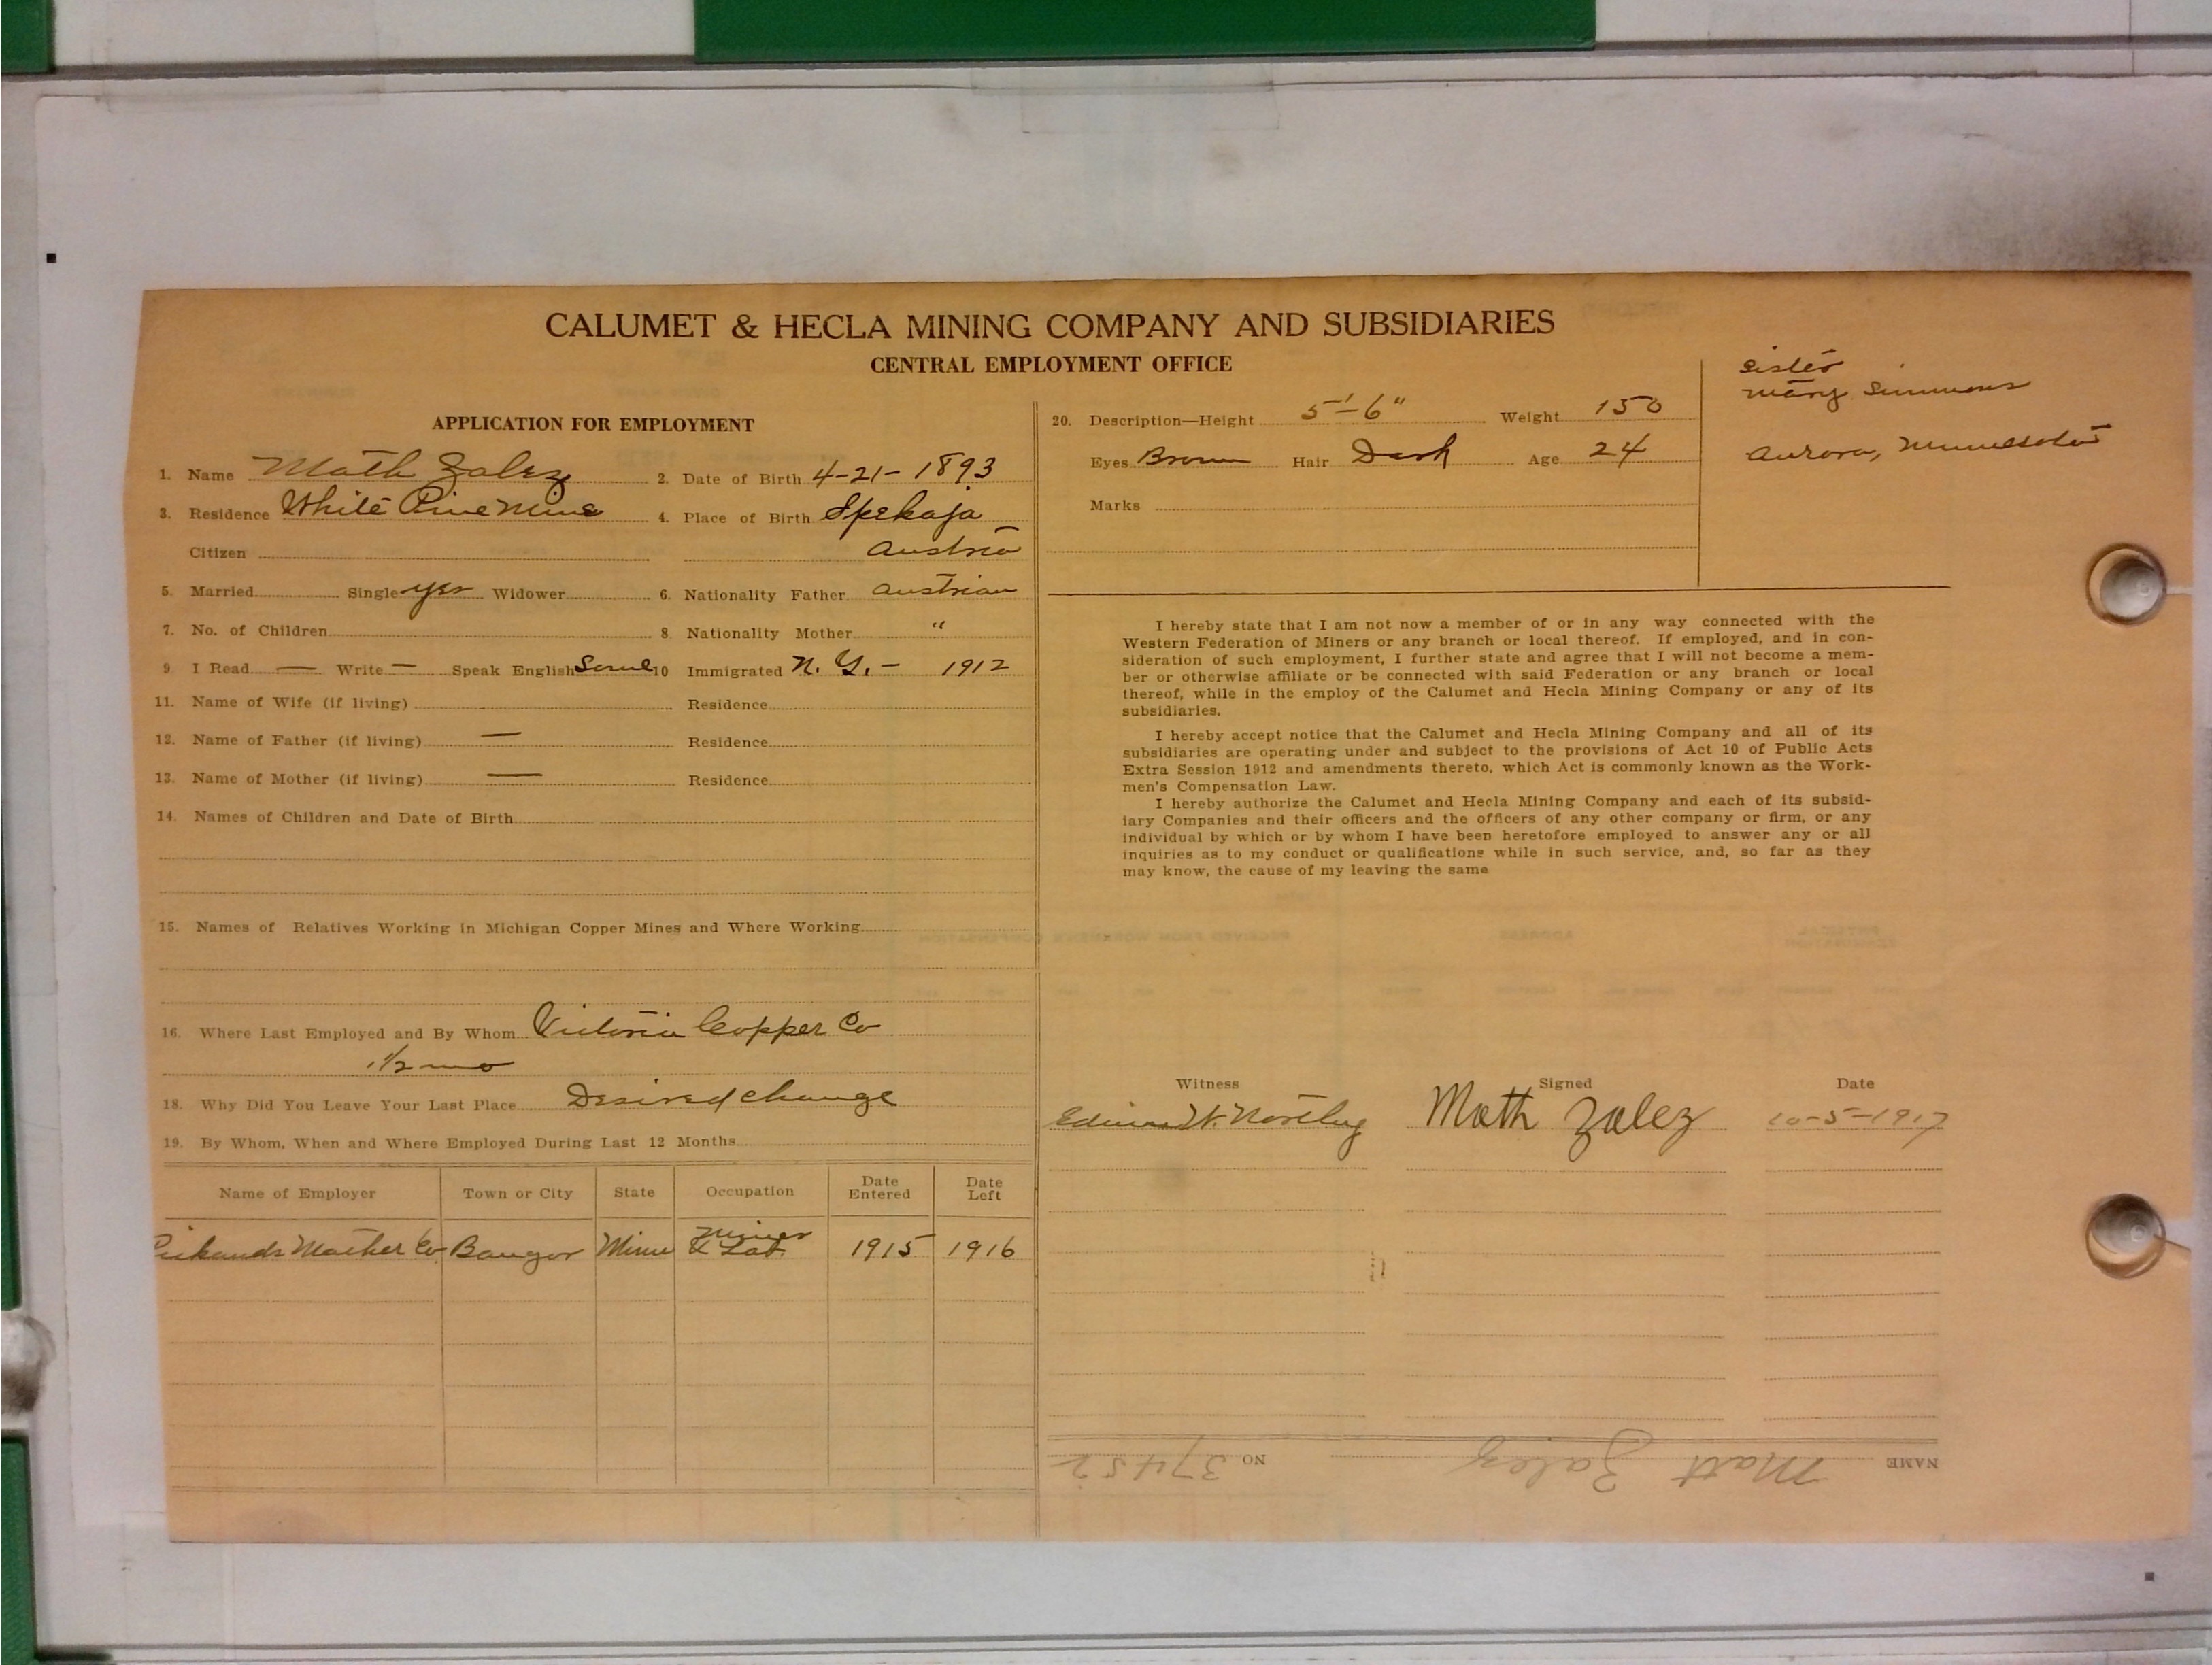 CALUMET & HECLA MINING COMPANY AND SUBSIDIARIES
CENTRAL EMPLOYMENT OFFICE
APPLICATION FOR EMPLOYMENT
1. Name Math Zalez 2. Date of Birth 4-21-1893
3. Residence White Pine Mine 4. Place of Birth Spekaja
Citizen Austria
5. Married Single yes Widower 6. Nationality Father Austrian
7. No. of Children 8. Nationality Mother "
9 I Read — Write — Speak English Some 10 Immigrated N. Y. - 1912
11. Name of Wife (if living) Residence
12. Name of Father (if living) — Residence
13. Name of Mother (if living) — Residence
14. Names of Children and Date of Birth
15. Names of Relatives Working in Michigan Copper Mines and Where Working
16. Where Last Employed and By Whom Victoria Copper Co
1 1/2 mo
18. Why Did You Leave Your Last Place Desired change
19. By Whom, When and Where Employed During Last 12 Months
Name of Employer Town or City State Occupation Date Entered Date Left
Pickands Mather Co Bangor Minn Miner & Lab. 1915 1916
20. Description—Height 5'-6" Weight 150
Eyes Brown Hair Dark Age 24
Marks
sister
Mary Simmons
Aurora, Minnesota
I hereby state that I am not now a member of or in any way connected with the
Western Federation of Miners or any branch or local thereof. If employed, and in con-
sideration of such employment, I further state and agree that I will not become a mem-
ber or otherwise affiliate or be connected with said Federation or any branch or local
thereof, while in the employ of the Calumet and Hecla Mining Company or any of its
subsidiaries.
I hereby accept notice that the Calumet and Hecla Mining Company and all of its
subsidiaries are operating under and subject to the provisions of Act 10 of Public Acts
Extra Session 1912 and amendments thereto, which Act is commonly known as the Work-
men's Compensation Law.
I hereby authorize the Calumet and Hecla Mining Company and each of its subsid-
iary Companies and their officers and the officers of any other company or firm, or any
individual by which or by whom I have been heretofore employed to answer any or all
inquiries as to my conduct or qualifications while in such service, and, so far as they
may know, the cause of my leaving the same
Witness Signed Date
Math Zalez 10-5-1917
NAME Matt Zalez NO 37452